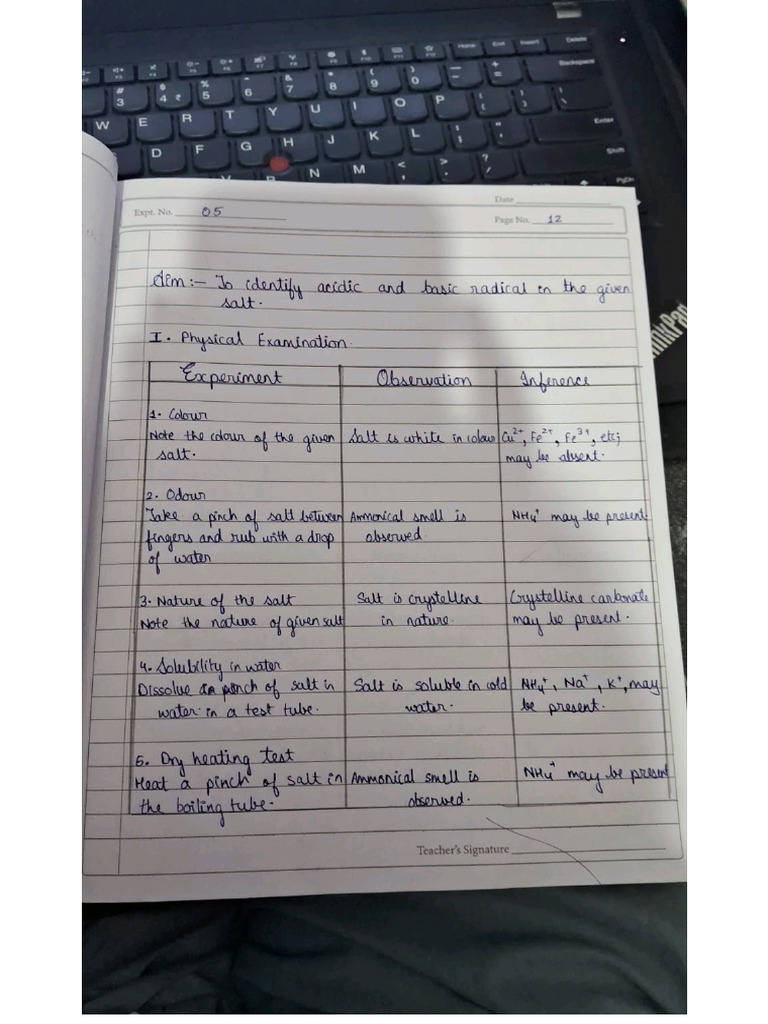 Home End Insert Delete
# $ % ^ & * ( ) _ +
3 4 ₹ 5 6 7 8 9 0 - = Backspace
W E R T Y U I O P { } |
[ ] \
D F G H J K L : " Enter
; '
N M < > ? Shift
, . /
PgDn
ThinkPad
Date
Expt. No. 05
Page No. 12
Aim :- To identify acidic and basic radical in the given
salt.
I. Physical Examination.
Experiment Observation Inference
1. Colour
Note the colour of the given Salt is white in colour Cu²⁺, Fe²⁺, Fe³⁺, etc;
salt. may be absent.
2. Odour
Take a pinch of salt between Ammonical smell is NH₄⁺ may be present.
fingers and rub with a drop observed.
of water
3. Nature of the salt Salt is crystelline Crystelline carbonate
Note the nature of given salt in nature. may be present.
4. Solubility in water
Dissolve a pinch of salt in Salt is soluble in cold NH₄⁺, Na⁺, K⁺, may
water in a test tube. water. be present.
5. Dry heating test
Heat a pinch of salt in Ammonical smell is NH₄⁺ may be present
the boiling tube. observed.
Teacher's Signature